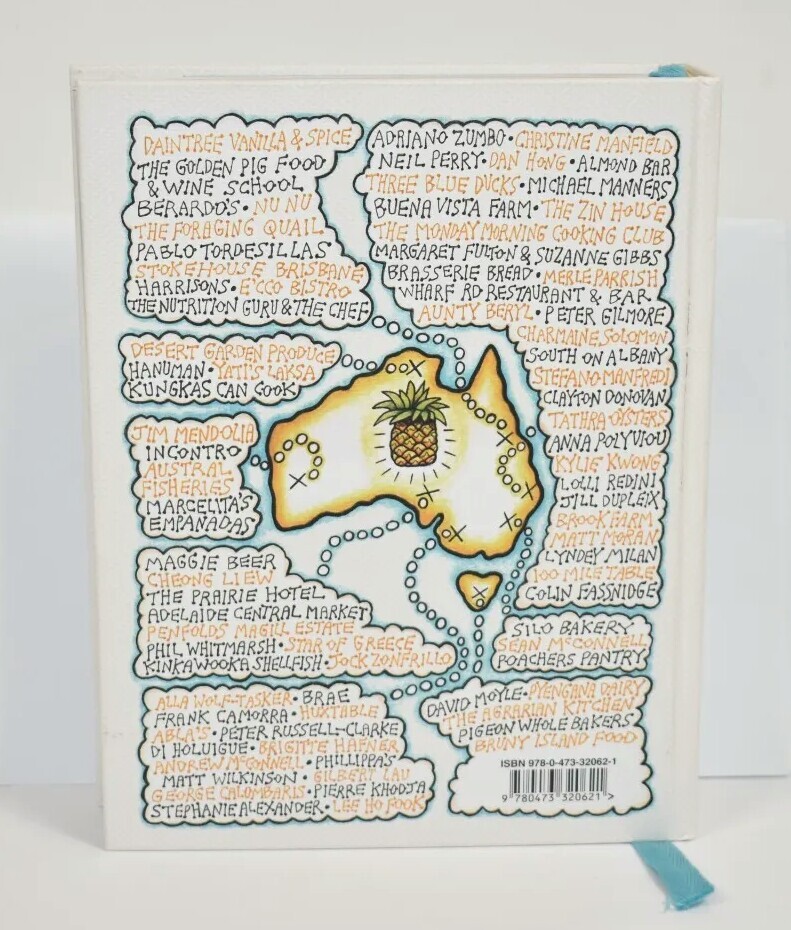 DAINTREE VANILLA & SPICE
THE GOLDEN PIG FOOD
& WINE SCHOOL
BERARDO'S • NU NU
THE FORAGING QUAIL
PABLO TORDESILLAS
STOKEHOUSE BRISBANE
HARRISONS • E'CCO BISTRO
THE NUTRITION GURU & THE CHEF
ADRIANO ZUMBO • CHRISTINE MANFIELD
NEIL PERRY • DAN HONG • ALMOND BAR
THREE BLUE DUCKS • MICHAEL MANNERS
BUENA VISTA FARM • THE ZIN HOUSE
THE MONDAY MORNING COOKING CLUB
MARGARET FULTON & SUZANNE GIBBS
BRASSERIE BREAD • MERLE PARRISH
WHARF RD RESTAURANT & BAR
AUNTY BERYL • PETER GILMORE
CHARMAINE SOLOMON
SOUTH ON ALBANY
STEFANO MANFREDI
CLAYTON DONOVAN
TATHRA OYSTERS
ANNA POLYVIOU
KYLIE KWONG
LOLLI REDINI
JILL DUPLEIX
BROOK FARM
MATT MORAN
LYNDEY MILAN
100 MILE TABLE
COLIN FASSNIDGE
DESERT GARDEN PRODUCE
HANUMAN • YATI'S LAKSA
KUNGKAS CAN COOK
JIM MENDOLIA
INCONTRO
AUSTRAL
FISHERIES
MARCELITA'S
EMPANADAS
MAGGIE BEER
CHEONG LIEW
THE PRAIRIE HOTEL
ADELAIDE CENTRAL MARKET
PENFOLDS MAGILL ESTATE
PHIL WHITMARSH • STAR OF GREECE
KINKAWOOKA SHELLFISH • JOCK ZONFRILLO
SILO BAKERY
SEAN McCONNELL
POACHERS PANTRY
ALLA WOLF-TASKER • BRAE
FRANK CAMORRA • HUXTABLE
ABLA'S • PETER RUSSELL-CLARKE
DI HOLUIGUE • BRIGITTE HAFNER
ANDREW McCONNELL • PHILLIPPA'S
MATT WILKINSON • GILBERT LAU
GEORGE CALOMBARIS • PIERRE KHODJA
STEPHANIE ALEXANDER • LEE HO FOOK
DAVID MOYLE • PYENGANA DAIRY
THE AGRARIAN KITCHEN
PIGEON WHOLE BAKERS
BRUNY ISLAND FOOD
ISBN 978-0-473-32062-1
9 780473 320621 >